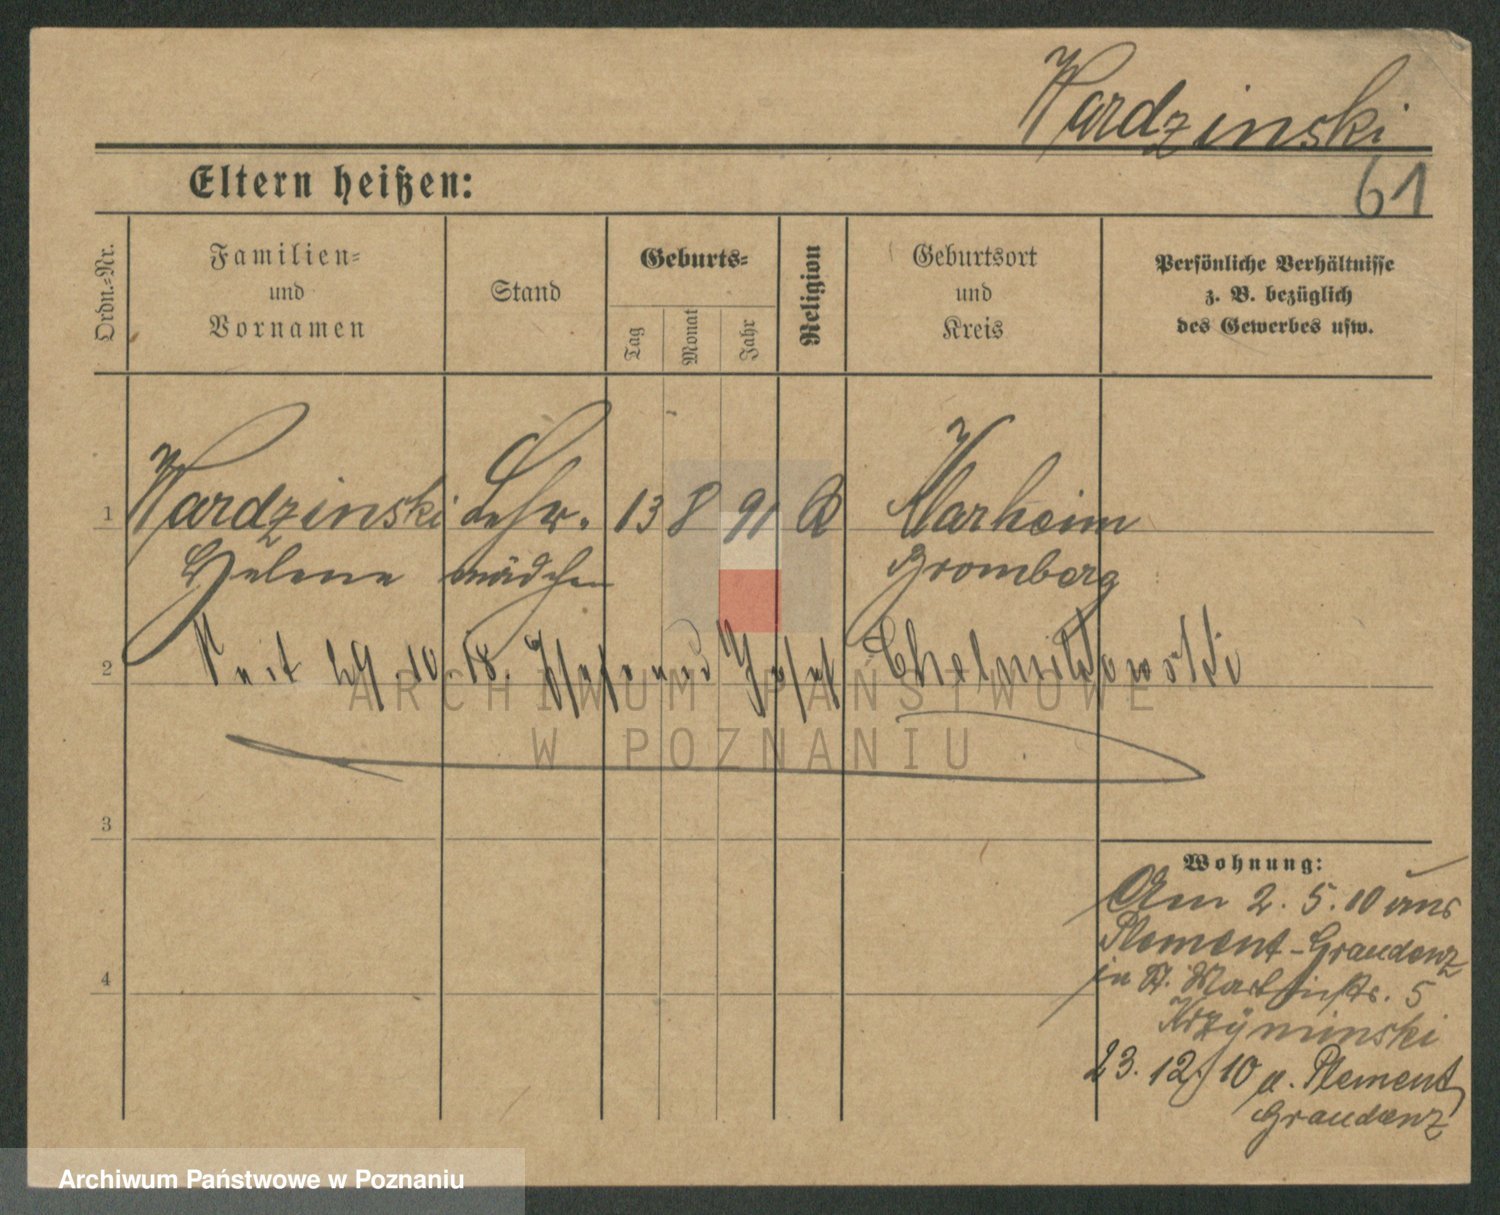 Wardzinski
61
Eltern heißen:
Ordn.-Nr.
Familien-
und
Vornamen
Stand
Geburts-
Tag
Monat
Jahr
Religion
Geburtsort
und
Kreis
Persönliche Verhältnisse
z. B. bezüglich
des Gewerbes usw.
1
Wardzinski Lehr. 13 8 91 Marheim
Helene mädchen Bromberg
2
Seit 29.10.18. Ehefrau Josef Chelmikowski
ARCHIWUM PAŃSTWOWE
W POZNANIU
3
Wohnung:
Am 2. 5. 10 aus
Plement-Graudenz
in St. Martinstr. 5
Krzyminski
4
23. 12. 10 n. Plement
Graudenz
Archiwum Państwowe w Poznaniu